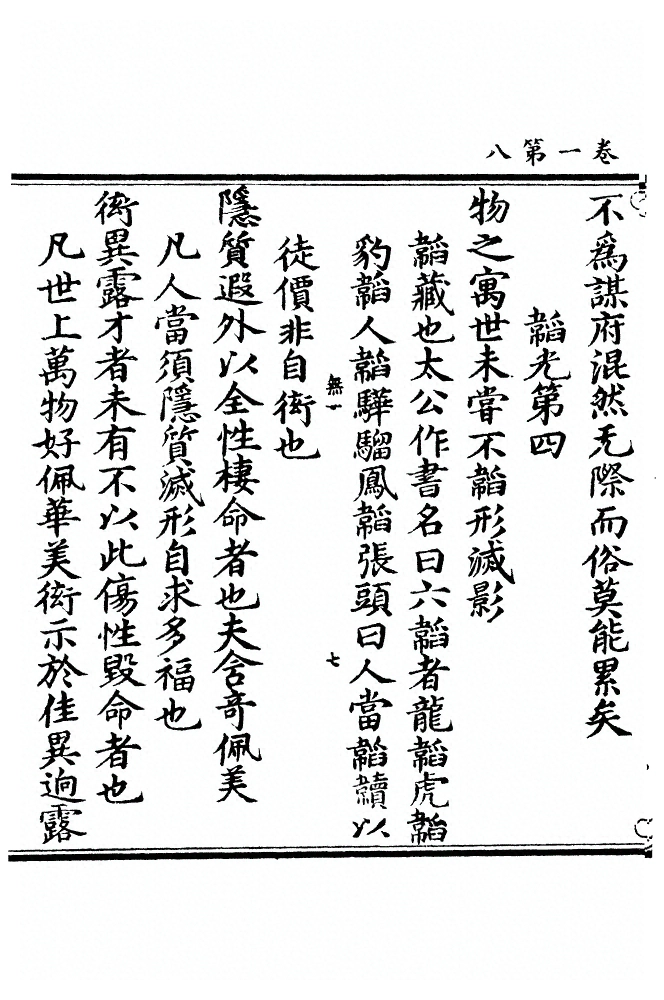 卷一第八
不為謀府混然无際而俗莫能累矣
韜光第四
物之寓世未嘗不韜形滅影
韜藏也太公作書名曰六韜者龍韜虎韜
豹韜人韜驊騮鳳韜張頭曰人當韜韥以
無一
七
徒價非自衒也
隱質遐外以全性棲命者也夫含奇佩美
凡人當須隱質滅形自求多福也
衒異露才者未有不以此傷性毀命者也
凡世上萬物好佩華美衒示於佳異逈露